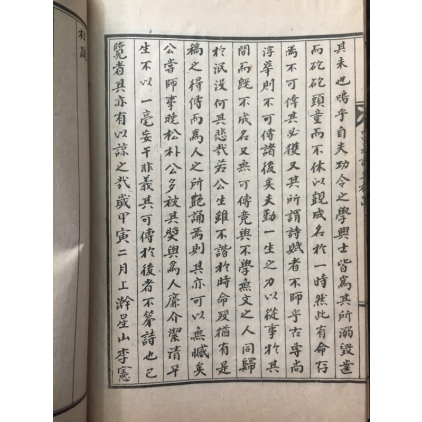 其未也嗚乎自夫功令之學興士皆爲其所溺毀齒
而矻矻頭童而不休以覬成名於一時然此有命存
焉不可傳其必獲又其所謂詩賦者不師乎古專尚
浮華則不可傳諸後矣夫勤一生之力以從事於其
間而旣不成名又無可傳竟與不學無文之人同歸
於泯沒何其悲哉若公生雖不諧於時命歿猶有是
稿之得傳而爲人之所艶誦焉則其亦可以無憾矣
公嘗師事晩松朴公多被其奬與爲人廉介潔淸平
生不以一毫妄干非義其可傳於後者不第詩也已
覽者其亦有以諒之哉歲甲寅二月上澣星山李憲